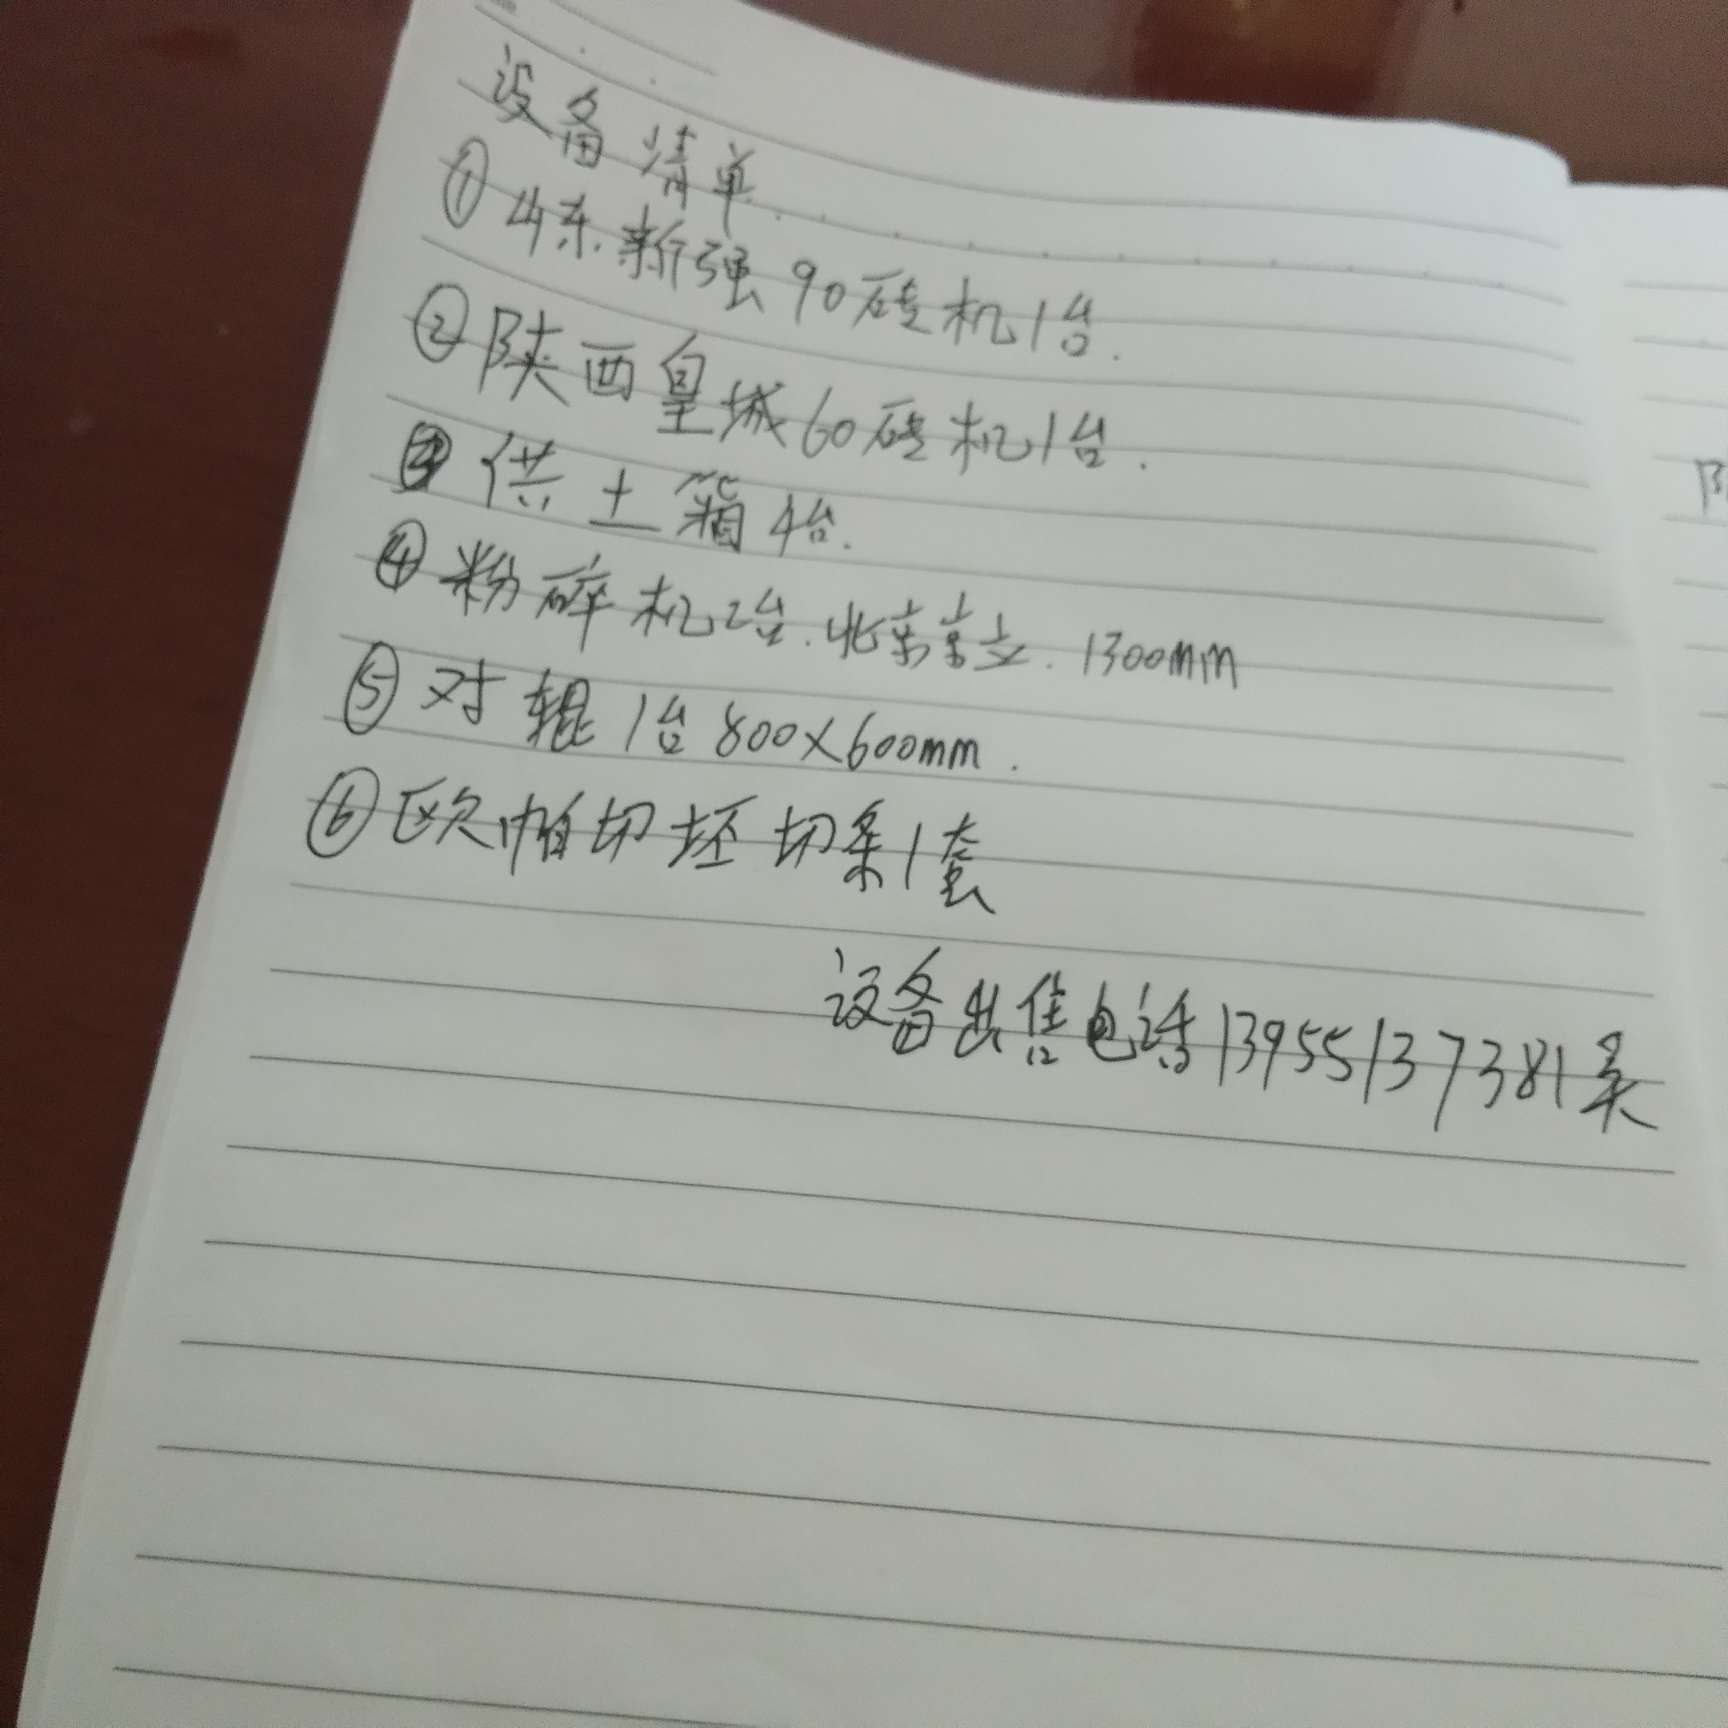 设备清单
①山东新强90砖机1台.
②陕西皇城60砖机1台.
③供土箱4台.
④粉碎机2台.北京京立.1300mm
⑤对辊1台800×600mm.
⑥欧帕切坯切条1套
设备出售电话13955137381吴